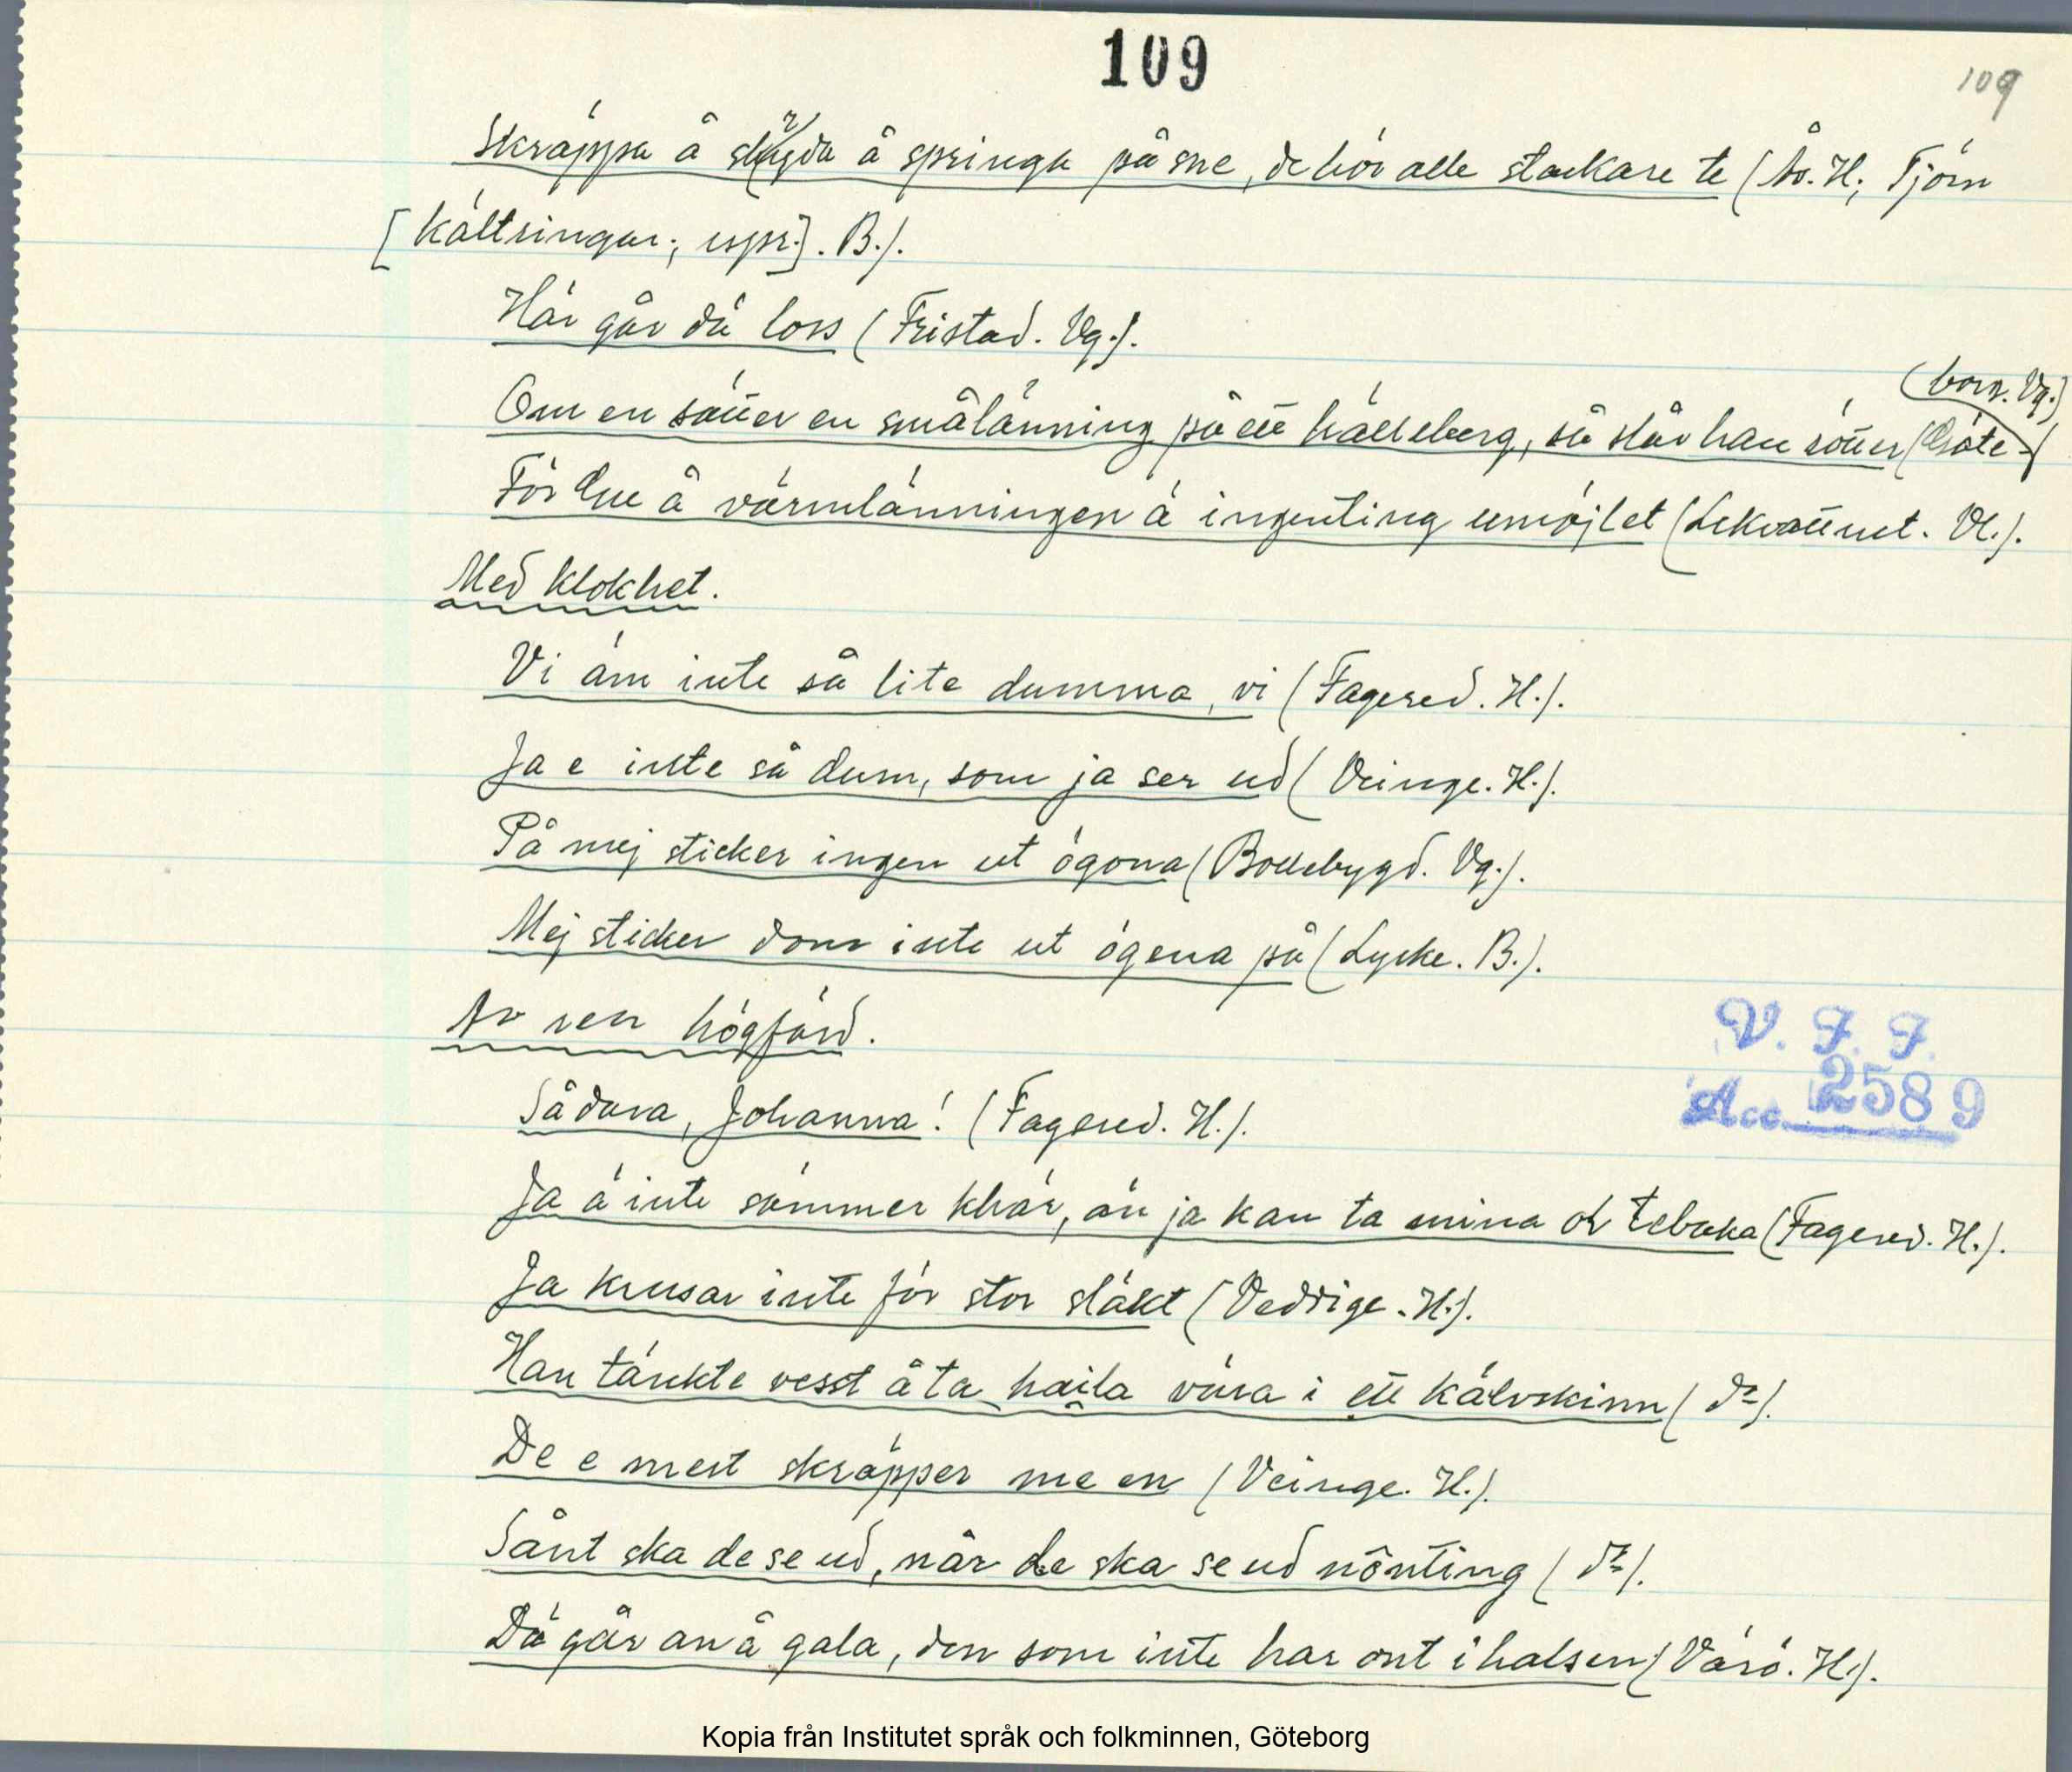 109
109
Skräppa å slägda å springa på sne, de hör alle stackare te (As. H; Tjörn
[källringar; uspr.]. B.).
Här går dä loss (Fristad. Vg.).
(borg. Vg.)
Om en sätter en smålänning på ett hälleberg, så slår han rötter (Göte-
För Gu å värmlänningen ä ingenting umöjlet (Lekvattnet. Vl.).
Med klokhet.
Vi äm inte så lite dumma, vi (Fagered. H.).
Ja e inte så dum, som ja ser ud (Veinge. H.).
På mej sticker ingen ut ögona (Bollebygd. Vg.).
Mej sticker dom inte ut ögena på (Lycke. B.).
Av ren högfärd.
Sådana, Johanna! (Fagered. H.).
Ja ä inte sämmer khär, än ja kan ta mina ol tebaka (Fagered. H.).
Ja krusar inte för stor släkt (Veddige. H.).
Han tänkte vesst å ta haila vära i ett kälvskinn (do).
De e mest skräpper me en (Veinge. H.).
Sånt ska de se ud, når de ska se ud nônting (do).
Dä går an å gala, den som inte har ont i halsen (Värö. H.).
V. F. F.
Acc. 2589
Kopia från Institutet språk och folkminnen, Göteborg